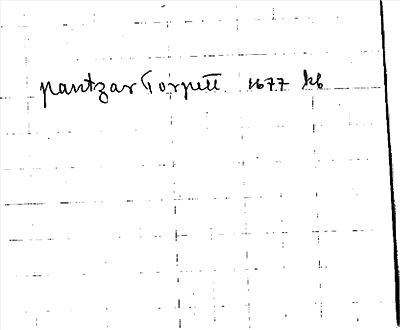 pantzar Torpett 1677 kb